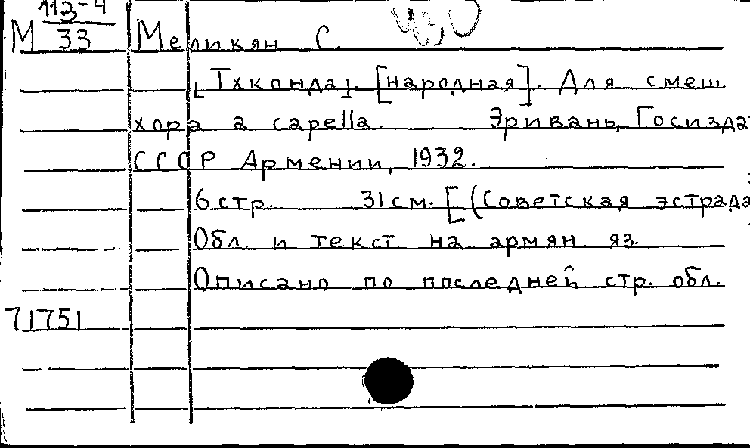 М 113-4/33 Меликян С.
[Тхконда]. [народная]. Для смеш.
хора a capella. Эривань, Госизда
ССР Армении, 1932.
6 стр. 31 см. [(Советская эстрада
Обл. и текст на армян. яз.
Описано по последней стр. обл.
71751